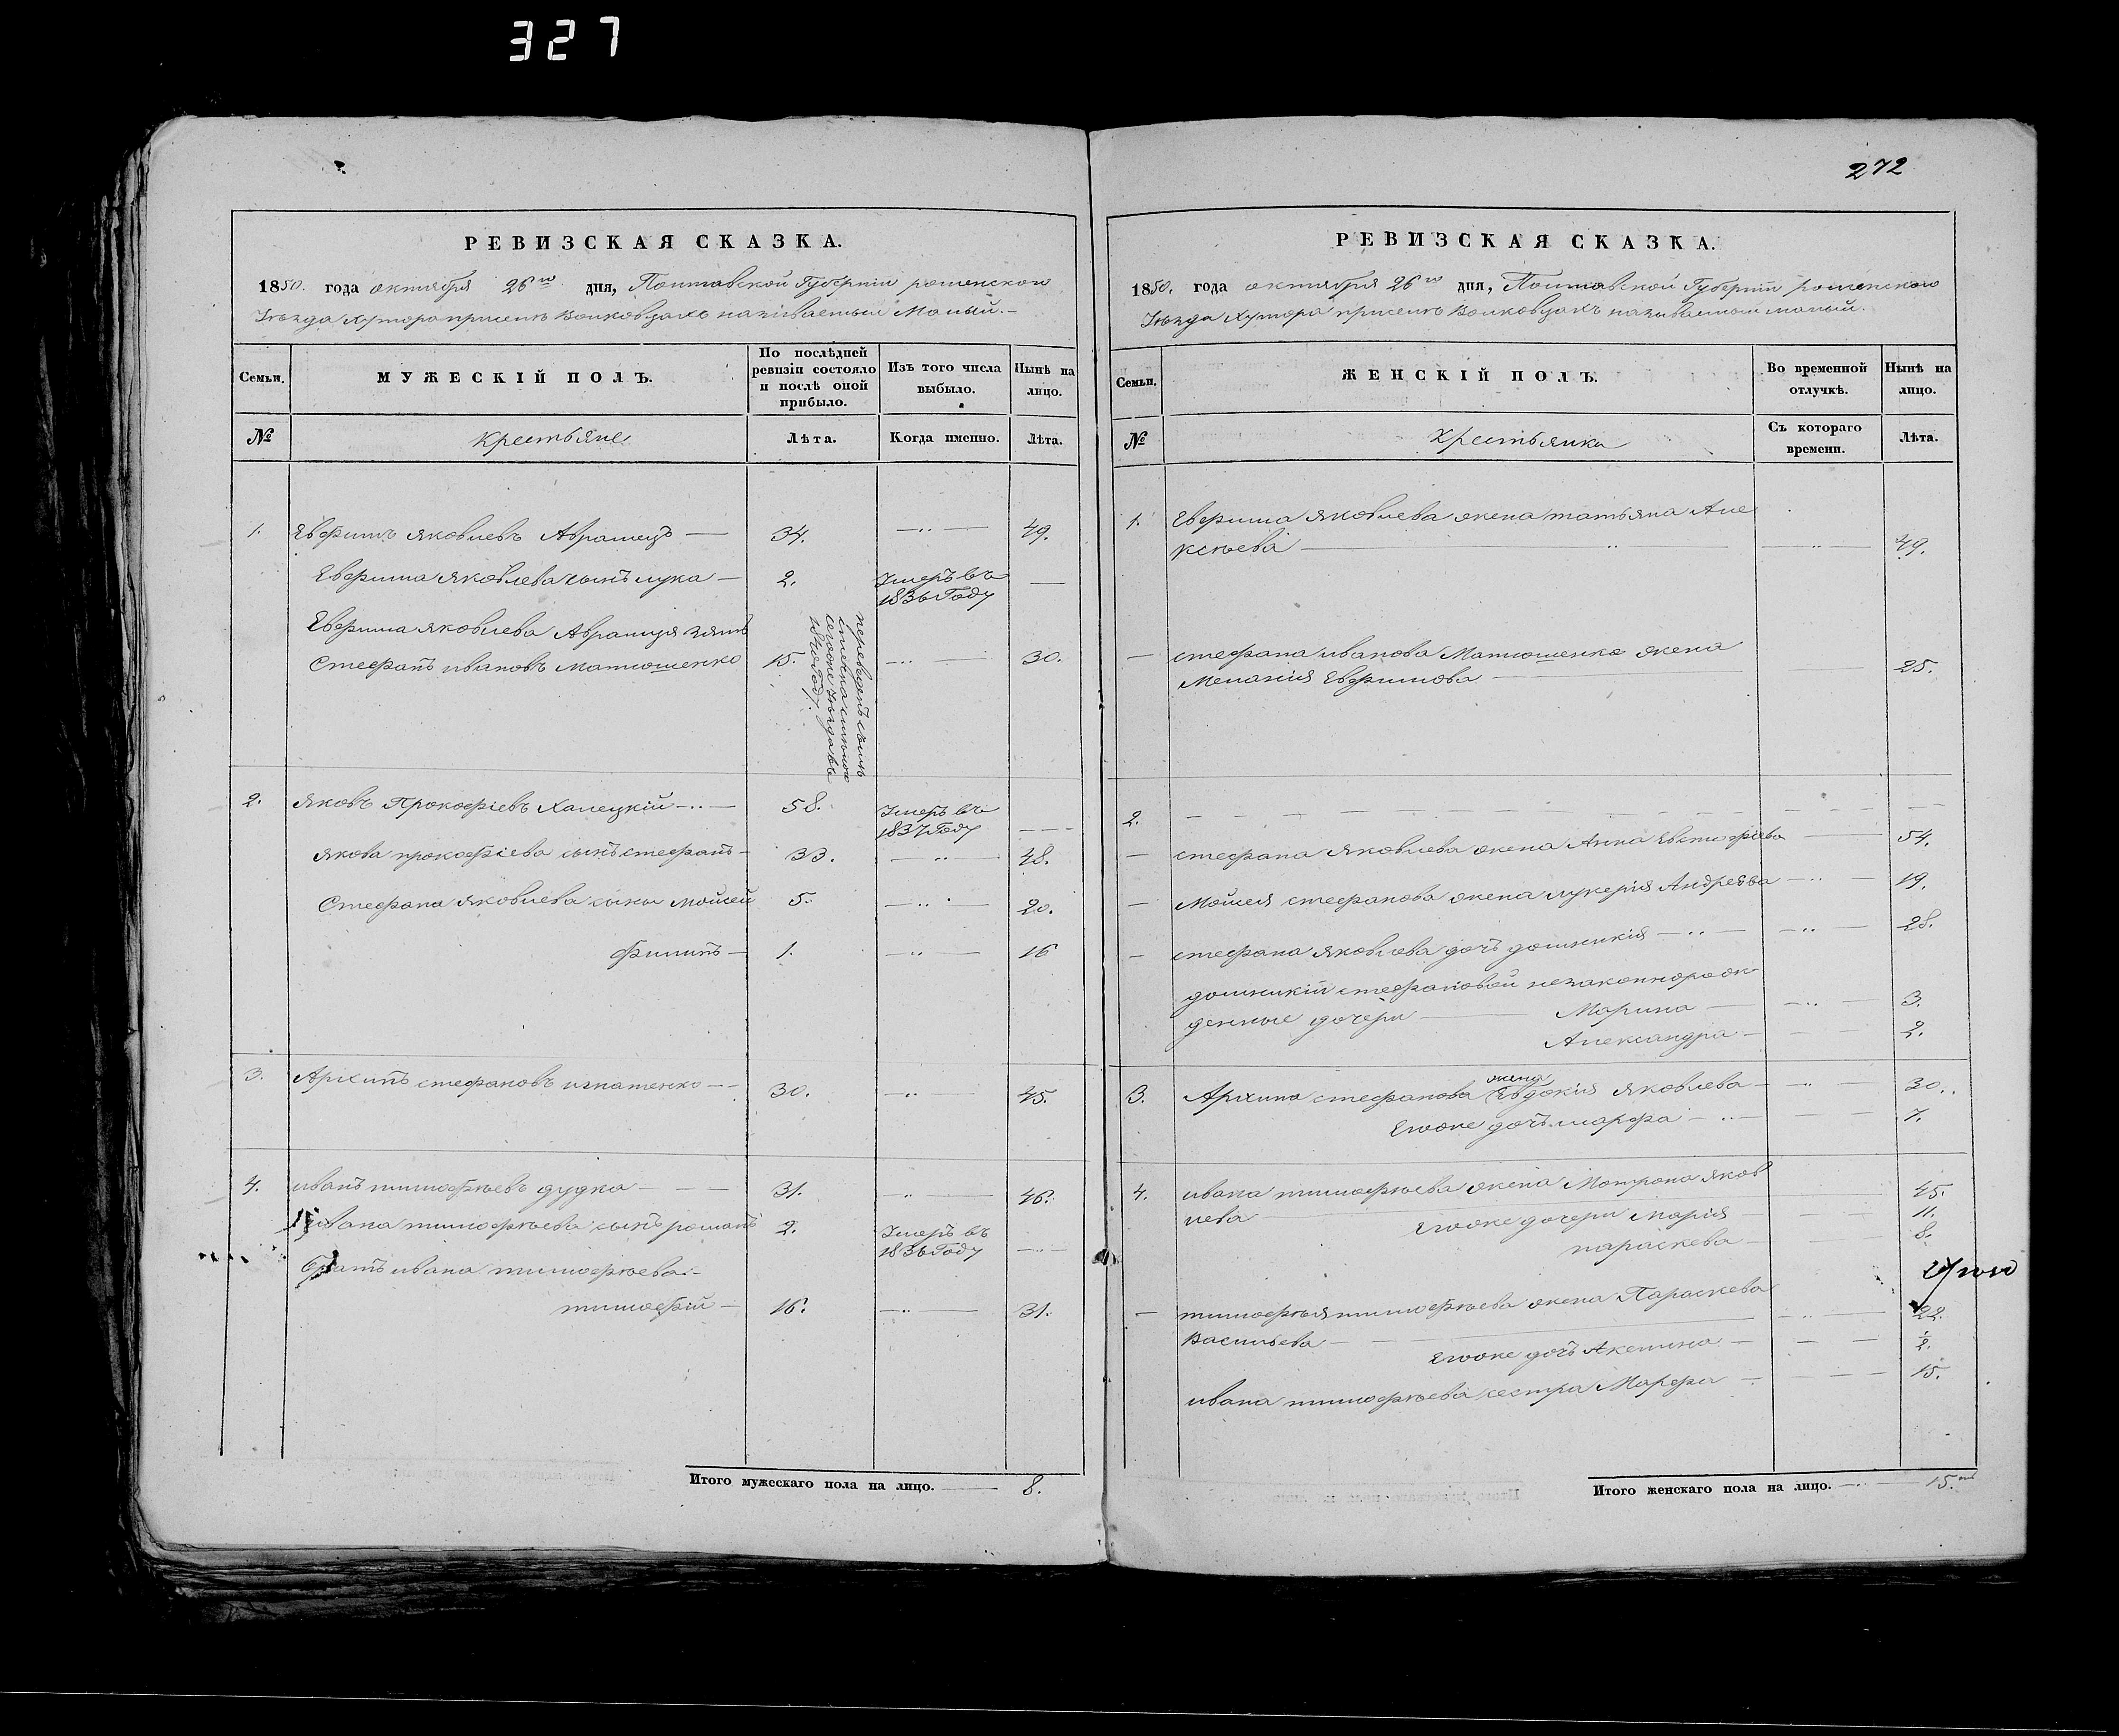 327
РЕВИЗСКАЯ СКАЗКА.
1850. года октября 26го дня, Полтавской Губерніи роменского
Уѣзда Хутора при селѣ Волковцахъ называемый Малый.
Семьи.
МУЖЕСКІЙ ПОЛЪ.
По послѣдней ревизіи состояло и послѣ оной прибыло.
Изъ того числа выбыло.
Нынѣ на лицо.
№
Крестьяне
Лѣта.
Когда именно.
Лѣта.
1. Евфимъ яковлевъ Аврамецъ — 34. — 49.
Евфима яковлева сынъ лука — 2. Умеръ въ 1836 Году —
Евфима яковлева Аврамця зять
Стефанъ ивановъ Матюшенко 15. — 30.
переведенъ съ
1840 Году.
2. яковъ Прокофіевъ Халецкій — 58. Умеръ въ 1837 Году —
якова прокофіева сынъ стефанъ — 33. — 48.
Стефана яковлева сыны мойсей 5. — 20.
филипъ — 1. — 16
3. Архипъ стефановъ игнатенко — 30. — 45.
4. иванъ тимофѣевъ дудка — 31. — 46.
ивана тимофѣева сынъ романъ 2. Умеръ въ 1836 Году —
братъ ивана тимофѣева
тимофій — 16. — 31.
Итого мужескаго пола на лицо. — 8.
272
РЕВИЗСКАЯ СКАЗКА.
1850. года октября 26го дня, Полтавской Губерніи роменского
Уѣзда Хутора при селѣ Волковцахъ называемом малый.
Семьи.
ЖЕНСКІЙ ПОЛЪ.
Во временной отлучкѣ.
Нынѣ на лицо.
№
Крестьянки
Съ котораго времени.
Лѣта.
1. Евфима яковлева жена татьяна Але
ксѣева — 49.
— стефана иванова Матюшенка жена
Меланія Евфимова — 25.
2. —
— стефана яковлева жена Анна Евстафіева — 54.
— Мойсея стефанова жена лукерія Андреева — 19.
— стефана яковлева дочь домникія — 28.
домникіи стефановой незаконнорож
денные дочери — Марина — 3.
Александра — 2.
3. Архипа стефанова жена Евдокія яковлева — 30.
Егоже дочь марфа — 7.
4. ивана тимофѣева жена Мотрона яков
лева — 45.
Егоже дочери Марія — 11.
параскева — 8.
— тимофѣя тимофѣева жена Параскева
Васильева — 22.
Егоже дочь Акелина — ½.
ивана тимофѣева сестра Марфа — 15.
Итого женскаго пола на лицо. — 15.